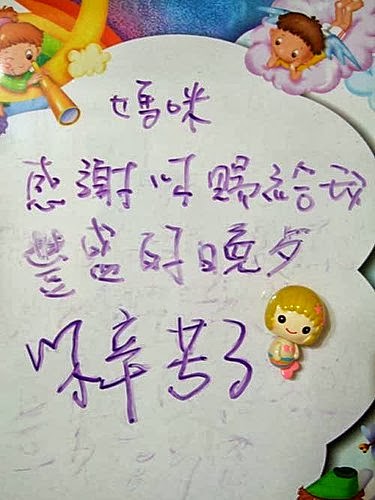 媽咪
感謝妳賜給我
豐盛的晚歺
妳辛苦了